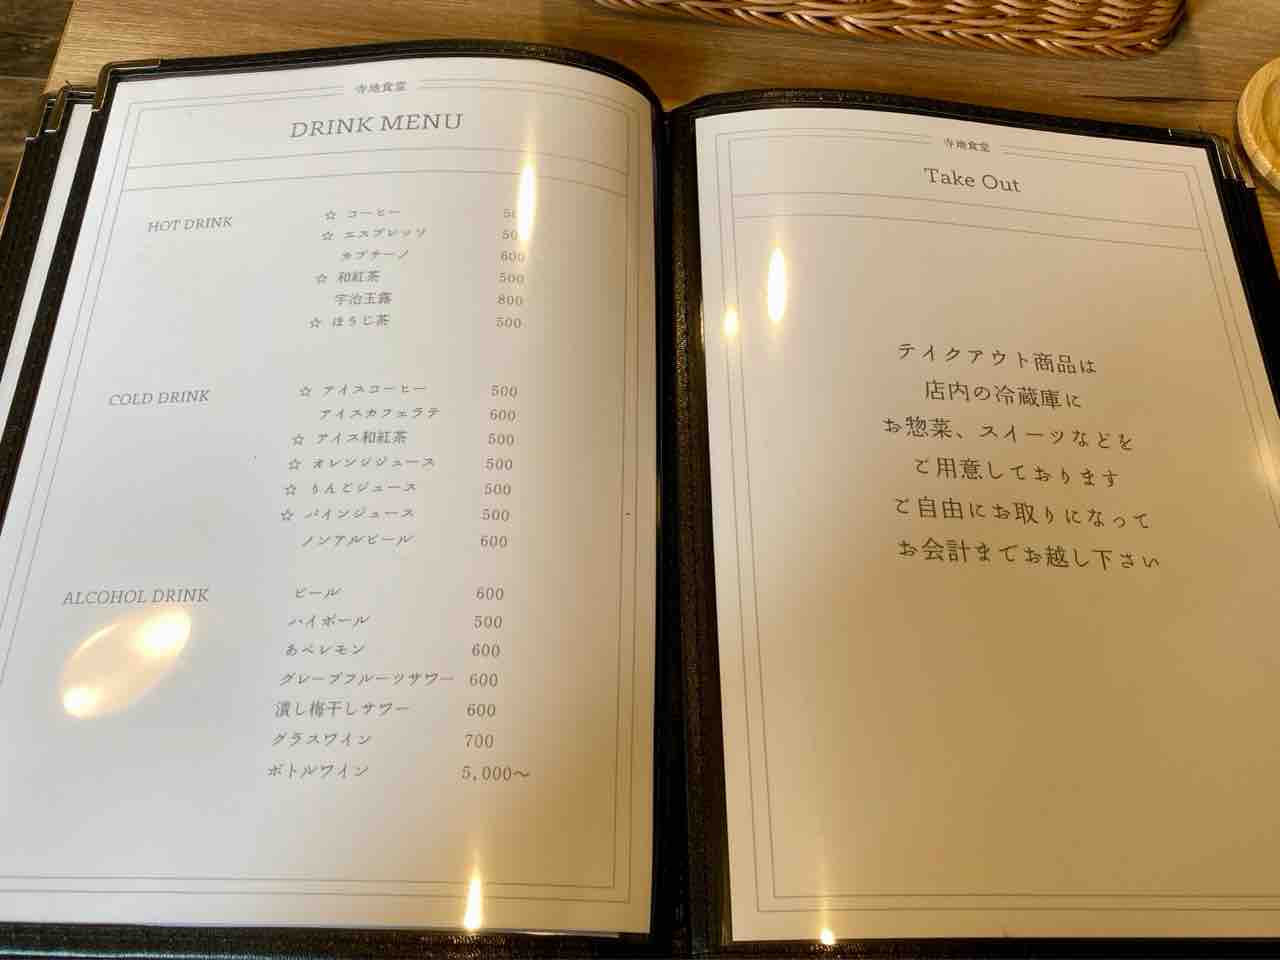 寺地食堂
DRINK MENU
HOT DRINK
☆ コーヒー 50
☆ エスプレッソ 50
カプチーノ 600
☆ 和紅茶 500
宇治玉露 800
☆ ほうじ茶 500
COLD DRINK
☆ アイスコーヒー 500
アイスカフェラテ 600
☆ アイス和紅茶 500
☆ オレンジジュース 500
☆ りんごジュース 500
☆ パインジュース 500
ノンアルビール 600
ALCOHOL DRINK
ビール 600
ハイボール 500
あべレモン 600
グレープフルーツサワー 600
潰し梅干しサワー 600
グラスワイン 700
ボトルワイン 5,000〜
寺地食堂
Take Out
テイクアウト商品は
店内の冷蔵庫に
お惣菜、スイーツなどを
ご用意しております
ご自由にお取りになって
お会計までお越し下さい